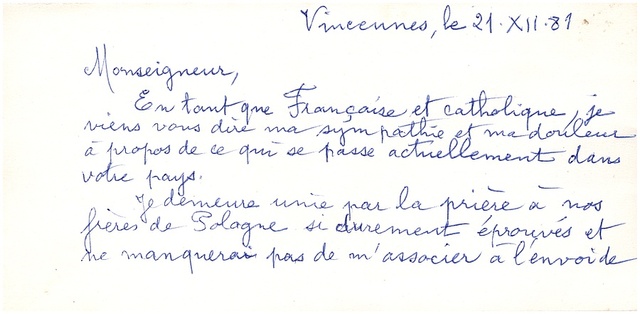 Vincennes, le 21.XII.81
Monseigneur,
En tant que Française et catholique, je
viens vous dire ma sympathie et ma douleur
à propos de ce qui se passe actuellement dans
votre pays.
Je demeure unie par la prière à nos
frères de Pologne si durement éprouvés et
ne manquerai pas de m'associer à l'envoi de